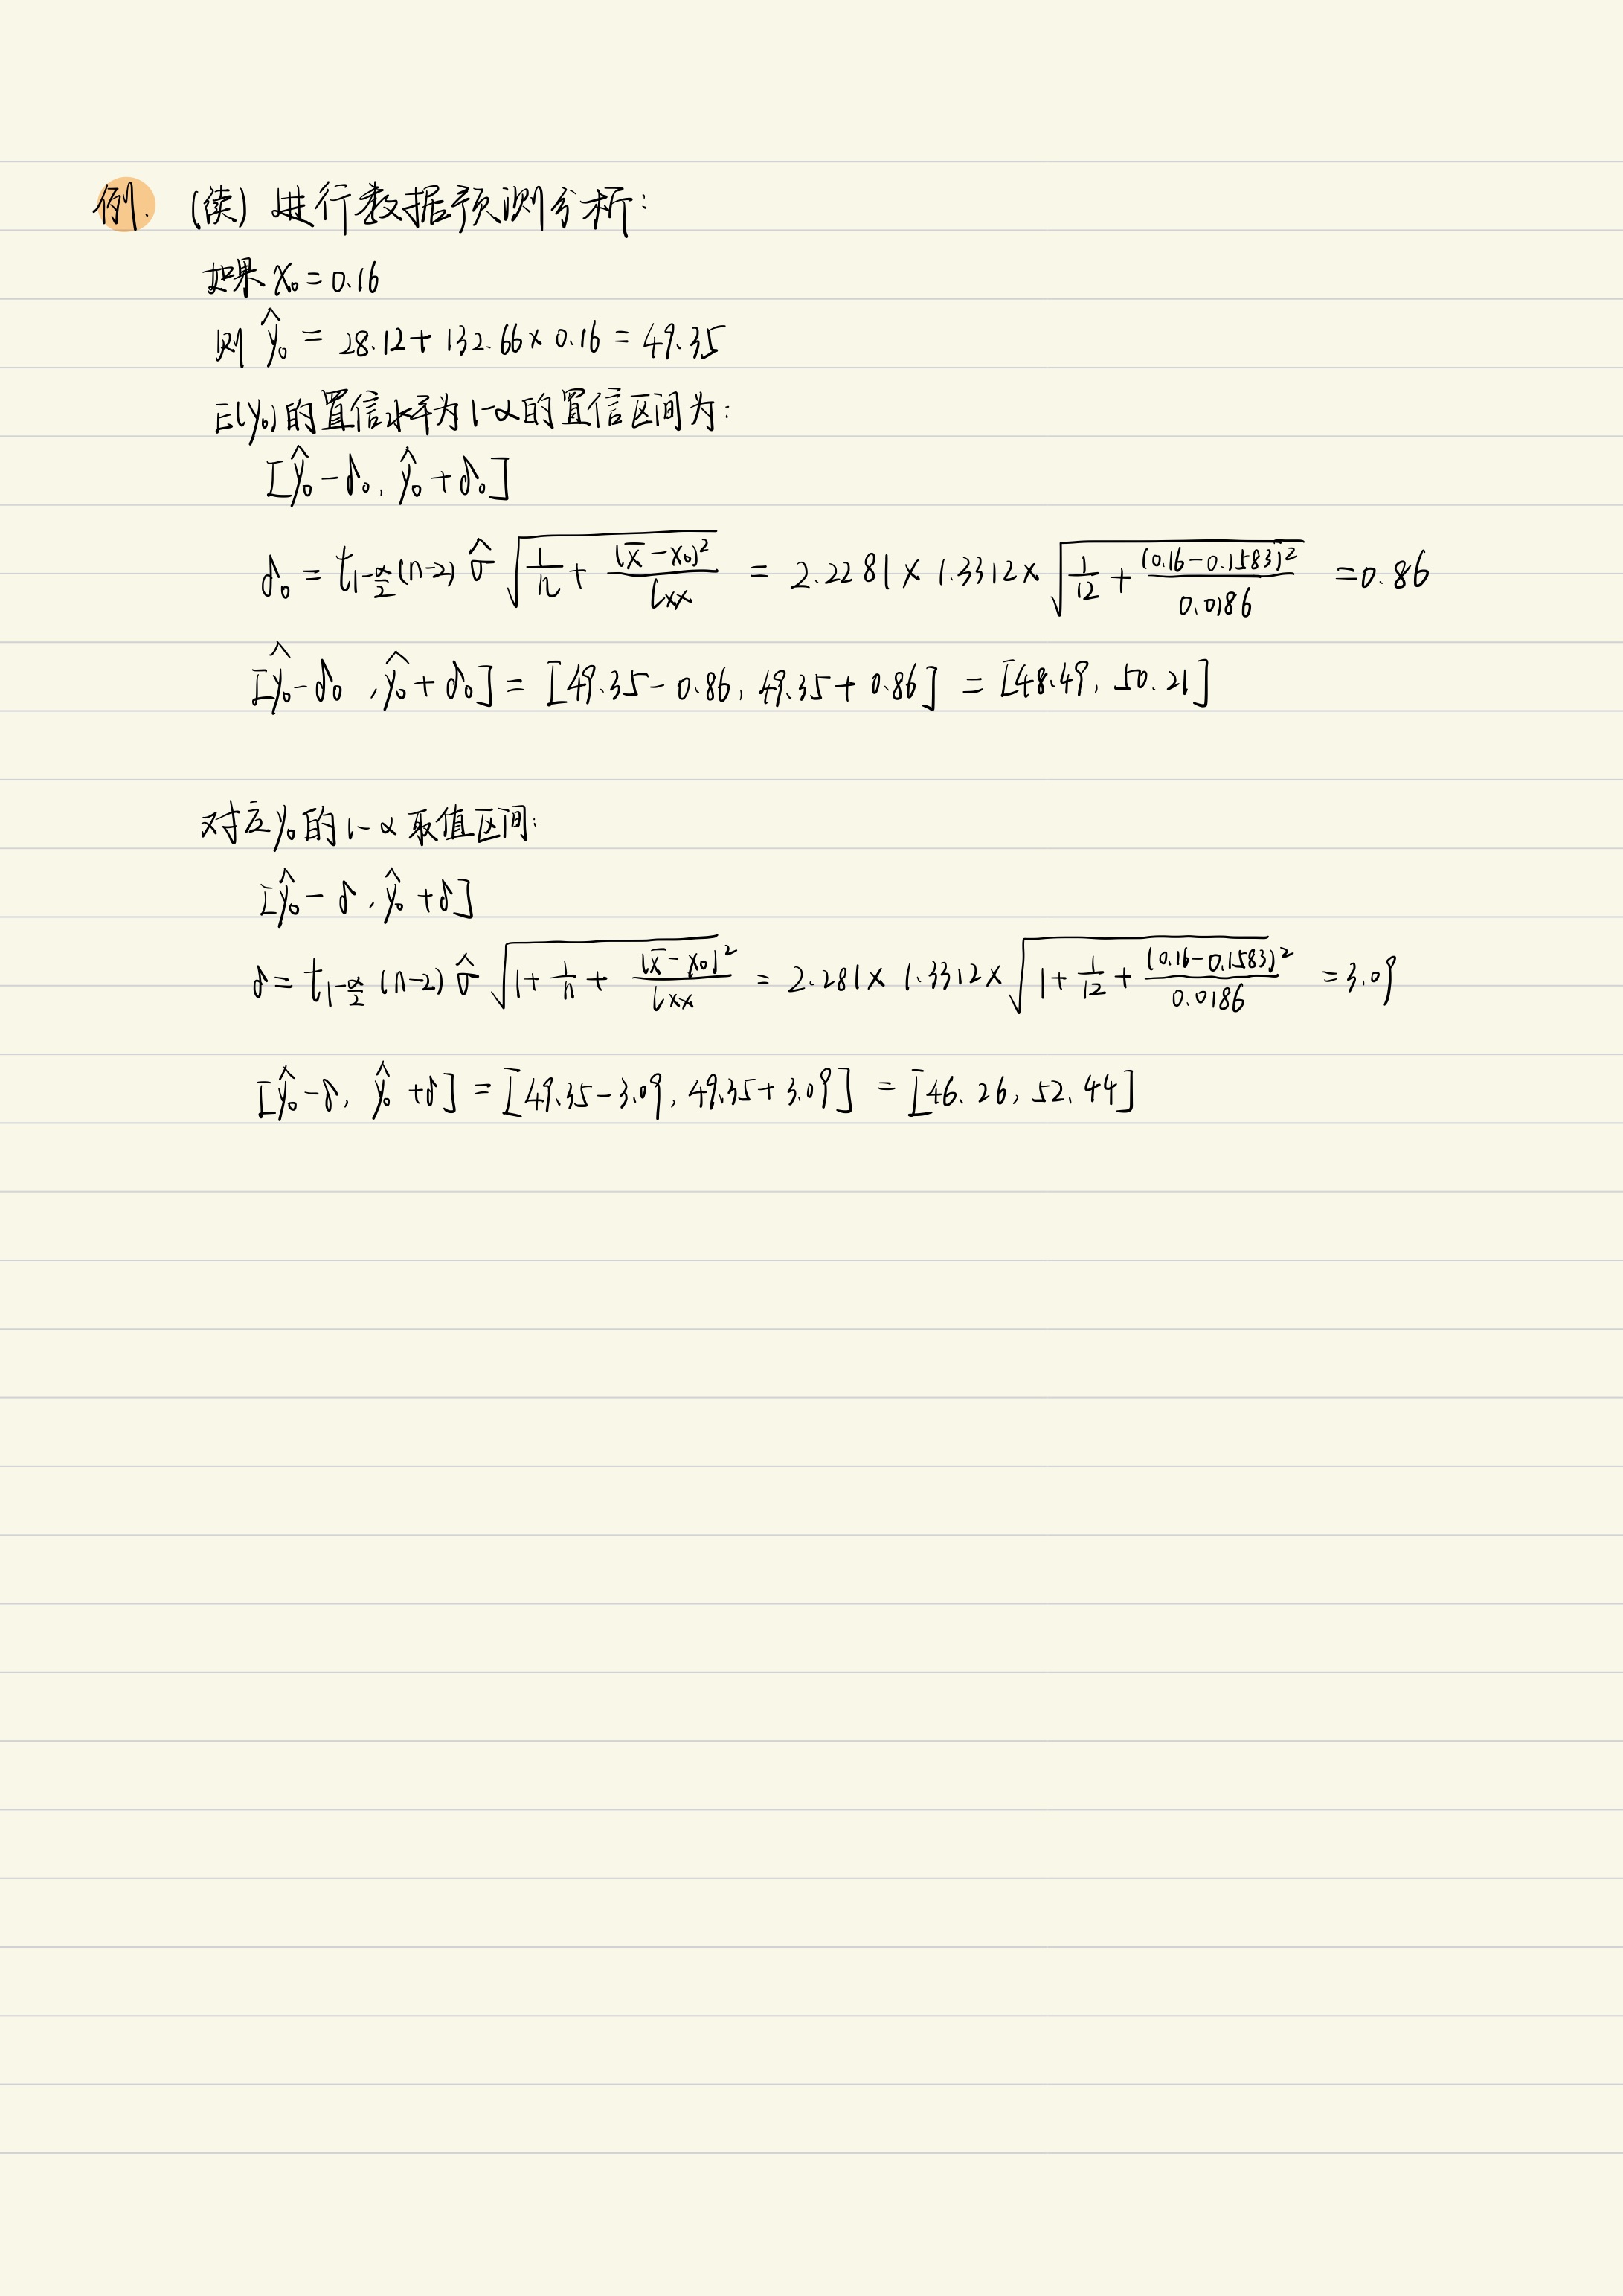 例. (续) 进行数据预测分析:
如果 x₀ = 0.16
则 ŷ₀ = 28.12 + 132.66 × 0.16 = 49.35
E(y₀) 的置信水平为 1-α 的置信区间为:
[ŷ₀ - δ₀, ŷ₀ + δ₀]
δ₀ = t_{1-α/2}(n-2) σ̂ √(1/n + (x̄ - x₀)²/lxx) = 2.2281 × 1.3312 × √(1/12 + (0.16-0.1583)²/0.0186) = 0.86
[ŷ₀ - δ₀, ŷ₀ + δ₀] = [49.35 - 0.86, 49.35 + 0.86] = [48.49, 50.21]
对应 y₀ 的 1-α 取值区间:
[ŷ₀ - δ, ŷ₀ + δ]
δ = t_{1-α/2}(n-2) σ̂ √(1 + 1/n + (x̄ - x₀)²/lxx) = 2.281 × 1.3312 × √(1 + 1/12 + (0.16-0.1583)²/0.0186) = 3.09
[ŷ₀ - δ, ŷ₀ + δ] = [49.35 - 3.09, 49.35 + 3.09] = [46.26, 52.44]